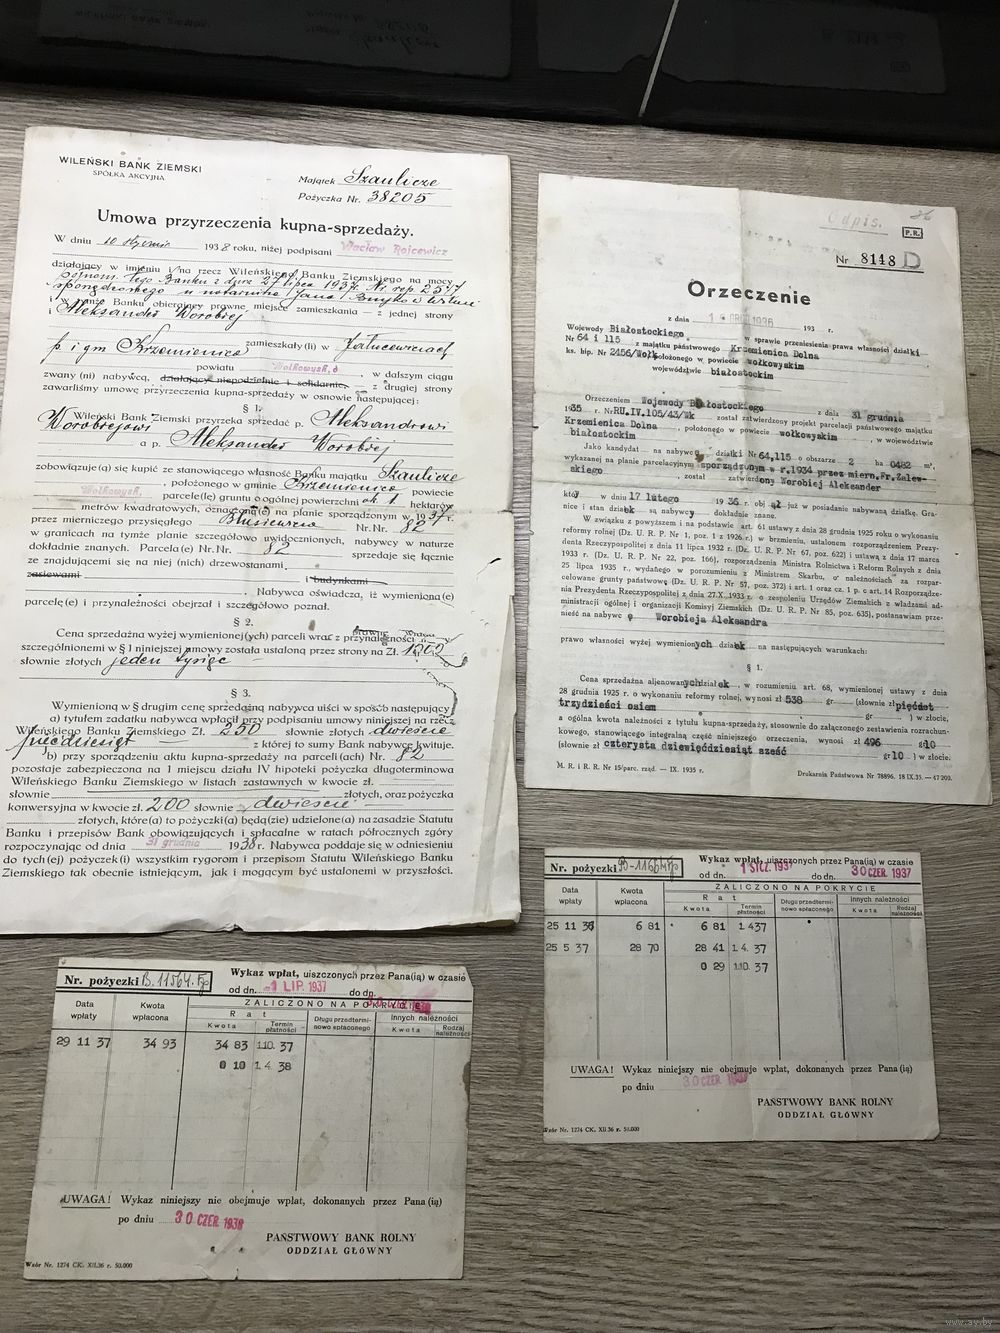 WILEŃSKI BANK ZIEMSKI
SPÓŁKA AKCYJNA
Majątek Szaulicze
Pożyczka Nr. 38205
Umowa przyrzeczenia kupna-sprzedaży.
W dniu 10 stycznia 1938 roku, niżej podpisani Wacław Rojcewicz
działający w imieniu i na rzecz Wileńskiego Banku Ziemskiego na mocy
pełnom. tego Banku z dnia 27 lipca 1937 r. Nr. rep. 2577
sporządzonego u notariusza Jana
i w tymże Banku obierający prawne miejsce zamieszkania — z jednej strony
i Aleksander Worobiej
p. i gm Krzemienica zamieszkały(li) w
powiatu Wołkowysk, w dalszym ciągu
zwany (ni) nabywcą, działający niepodzielnie i solidarnie, — z drugiej strony
zawarliśmy umowę przyrzeczenia kupna-sprzedaży w osnowie następującej:
§ 1.
Wileński Bank Ziemski przyrzeka sprzedać p. Aleksandrowi
Worobiejowi
a p. Aleksander Worobiej
zobowiązuje(ą) się kupić ze stanowiącego własność Banku majątku Szaulicze
, położonego w gminie Krzemienica powiecie
Wołkowysk, parcelę(le) gruntu o ogólnej powierzchni ok 1 hektarów
metrów kwadratowych, oznaczoną(e) na planie sporządzonym w 1937 r.
przez mierniczego przysięgłego Nr. Nr. 82
w granicach na tymże planie szczegółowo uwidocznionych, nabywcy w naturze
dokładnie znanych. Parcela(e) Nr. Nr. 82 sprzedaje się łącznie
ze znajdującemi się na niej (nich) drzewostanami
zasiewami i budynkami
. Nabywca oświadcza, iż wymienioną(e)
parcelę(e) i przynależności obejrzał i szczegółowo poznał.
§ 2.
Cena sprzedażna wyżej wymienionej(ych) parceli wraz z przynależności
szczególnionemi w § 1 niniejszej umowy została ustaloną przez strony na Zł. 1000
słownie złotych jeden tysiąc
§ 3.
Wymienioną w § drugim cenę sprzedażną nabywca uiści w sposób następujący
a) tytułem zadatku nabywca wpłacił przy podpisaniu umowy niniejszej na rzecz
Wileńskiego Banku Ziemskiego Zł. 250 słownie złotych dwieście
pięćdziesiąt z której to sumy Bank nabywcę kwituje.
b) przy sporządzaniu aktu kupna-sprzedaży na parceli(ach) Nr. 82
pozostaje zabezpieczona na 1 miejscu działu IV hipoteki pożyczka długoterminowa
Wileńskiego Banku Ziemskiego w listach zastawnych w kwocie zł.
słownie złotych, oraz pożyczka
konwersyjna w kwocie zł. 200 słownie dwieście
złotych, które(a) to pożyczki(a) będą(zie) udzielone(a) na zasadzie Statutu
Banku i przepisów Bank obowiązujących i spłacalne w ratach półrocznych zgóry
rozpoczynając od dnia 31 grudnia 1938 r. Nabywca poddaje się w odniesieniu
do tych(ej) pożyczek(i) wszystkim rygorom i przepisom Statutu Wileńskiego Banku
Ziemskiego tak obecnie istniejącym, jak i mogącym być ustalonemi w przyszłości.
Odpis.
36
P.R.
Nr 8148 D
Orzeczenie
z dnia 193 r.
Wojewody Białostockiego w sprawie przeniesienia prawa własności działki
Nr 64 i 115 z majątku państwowego Krzemienica Dolna
ks. hip. Nr 2456/Wołk położonego w powiecie wołkowyskim
województwie białostockim
Orzeczeniem Wojewody Białostockiego z dnia 31 grudnia
1935 r. Nr RU.IV.105/43/Wk został zatwierdzony projekt parcelacji państwowego majątku
Krzemienica Dolna, położonego w powiecie wołkowyskim, w województwie
białostockim
Jako kandydat na nabywcę działki Nr 64,115 o obszarze 2 ha 0482 m²,
wykazanej na planie parcelacyjnym sporządzonym w r.1934 przez miern.Fr.Zalew-
skiego, został zatwierdzony Worobiej Aleksander
który w dniu 17 lutego 1936 r. objął już w posiadanie nabywaną działkę. Gra-
nice i stan działek są nabywcy dokładnie znane.
W związku z powyższem i na podstawie art. 61 ustawy z dnia 28 grudnia 1925 roku o wykonaniu
reformy rolnej (Dz. U. R. P. Nr 1, poz. 1 z 1926 r.) w brzmieniu, ustalonem rozporządzeniem Prezy-
denta Rzeczypospolitej z dnia 11 lipca 1932 r. (Dz. U. R. P. Nr 67, poz. 622) i ustawą z dnia 17 marca
1933 r. (Dz. U. R. P. Nr 22, poz. 166), rozporządzenia Ministra Rolnictwa i Reform Rolnych z dnia
25 lipca 1935 r., wydanego w porozumieniu z Ministrem Skarbu, o należnościach za rozpar-
celowane grunty państwowe (Dz. U. R. P. Nr 57, poz. 372) i art. 1 oraz cz. 1 p. c art. 14 Rozporządze-
nia Prezydenta Rzeczypospolitej z dnia 27.X.1933 r. o zespoleniu Urzędów Ziemskich z władzami ad-
ministracji ogólnej i organizacji Komisyj Ziemskich (Dz. U. R. P. Nr 85, poz. 635), postanawiam prze-
nieść na nabywcę Worobieja Aleksandra
prawo własności wyżej wymienionych działek na następujących warunkach:
§ 1.
Cena sprzedażna aljenowanych działek, w rozumieniu art. 68, wymienionej ustawy z dnia
28 grudnia 1925 r. o wykonaniu reformy rolnej, wynosi zł 538 gr (słownie zł pięćset
trzydzieści osiem gr ) w złocie,
a ogólna kwota należności z tytułu kupna-sprzedaży, stosownie do załączonego zestawienia rozrachun-
kowego, stanowiącego integralną część niniejszego orzeczenia, wynosi zł 496 gr 10
(słownie zł czterysta dziewięćdziesiąt sześć gr 10) w złocie.
M. R. i R. R. Nr 15/parc. rząd. — IX. 1935 r.
Drukarnia Państwowa Nr 78896. 18 IX.35. — 47 200.
Nr. pożyczki
Wykaz wpłat, uiszczonych przez Pana(ią) w czasie
od dn. 1 STZ. 1937 do dn. 30 CZER. 1937
Data wpłaty
Kwota wpłacona
ZALICZONO NA POKRYCIE
Rat
Kwota
Termin płatności
Długu przedtermi-nowo spłaconego
Innych należności
Kwota
Rodzaj należności
25 11 36 6 81 6 81 1.4 37
25 5 37 28 70 28 41 1 4. 37
0 29 1.10. 37
UWAGA! Wykaz niniejszy nie obejmuje wpłat, dokonanych przez Pana (ią)
po dniu 30 CZER 1937
PAŃSTWOWY BANK ROLNY
ODDZIAŁ GŁÓWNY
Wzór Nr. 1274 CK. XII.36 r. 50.000
Nr. pożyczki B.11564.
Wykaz wpłat, uiszczonych przez Pana(ią) w czasie
od dn. 1 LIP. 1937 do dn.
Data wpłaty
Kwota wpłacona
ZALICZONO NA POKRYCIE
Rat
Kwota
Termin płatności
Długu przedtermi-nowo spłaconego
Innych należności
Kwota
Rodzaj należności
29 11 37 34 93 34 83 1.10. 37
0 10 1 4 38
UWAGA! Wykaz niniejszy nie obejmuje wpłat, dokonanych przez Pana (ią)
po dniu 30 CZER. 1938
PAŃSTWOWY BANK ROLNY
ODDZIAŁ GŁÓWNY
Wzór Nr. 1274 CK. XII.36 r. 50.000
www.ay.by